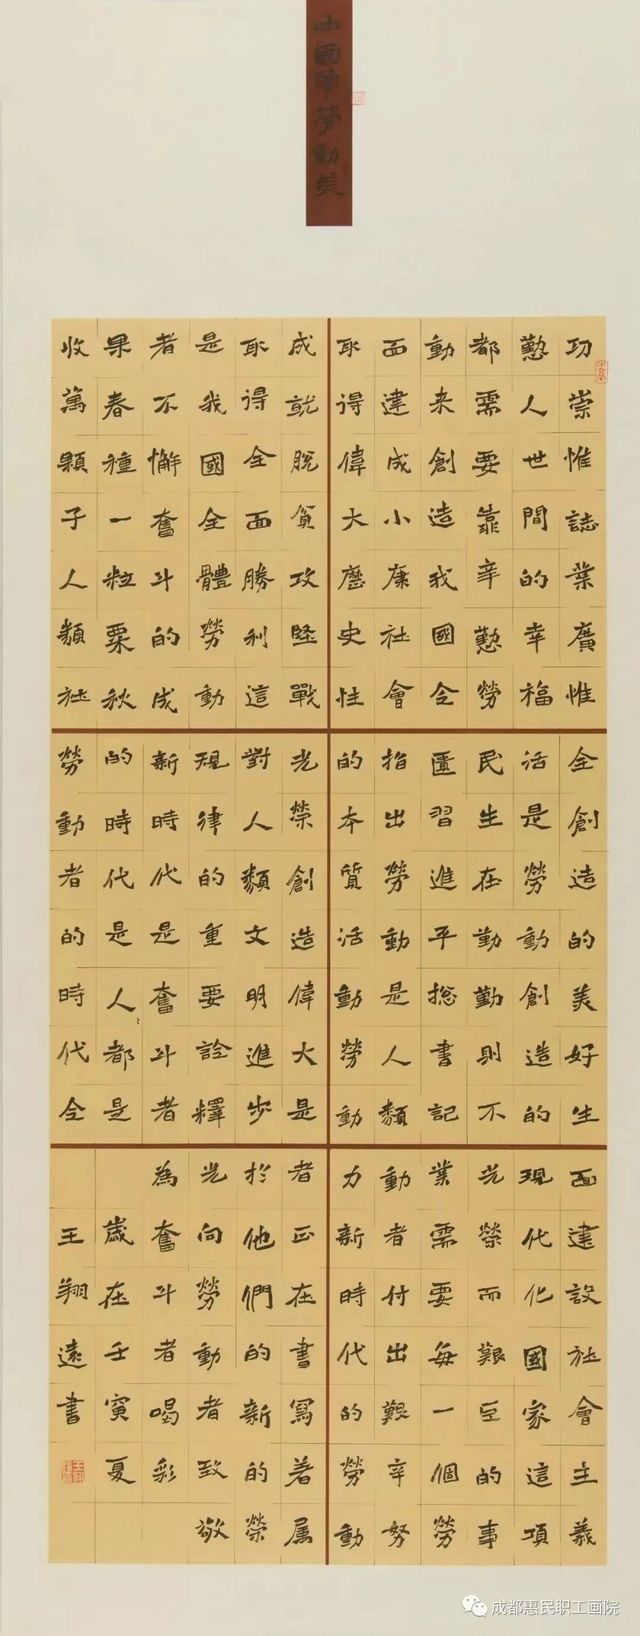 中國夢勞動美
功崇惟誌業廣惟
懃人世間的幸福
都需要靠辛懃勞
動来創造我國全
面建成小康社會
取得偉大歷史性
成就脫貧攻堅戰
取得全面勝利這
是我國全體勞動
者不懈奮斗的成
果春種一粒粟秋
收萬顆子人類社
会創造的美好生
活是勞動創造的
民生在勤勤則不
匱習進平総書記
指出勞動是人類
的本質活動勞動
光榮創造偉大是
對人類文明進步
規律的重要詮釋
新時代是奮斗者
的時代是人都是
勞動者的時代全
面建設社會主義
現代化國家這項
光榮而艱巨的事
業需要每一個勞
動者付出艱辛努
力新時代的勞動
者正在書寫着属
於他們的新的榮
光向勞動者致敬
為奮斗者喝彩
歲在壬寅夏
王翔遠書
成都惠民职工画院